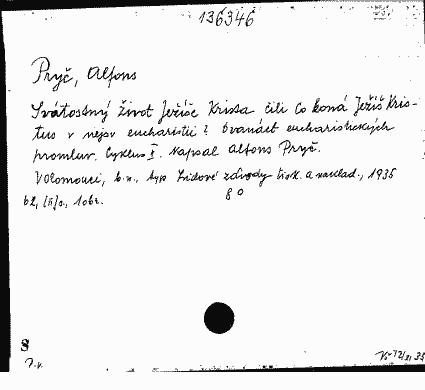 136346
Pryč, Alfons
Svátostný život Ježíše Krista čili Co koná Ježíš Kris-
tus v nejsv. eucharistii? Dvanáct eucharistických
promluv. Cyklus I. Napsal Alfons Pryč.
V Olomouci, b.n., typ. Lidové závody tisk. a naklad., 1935
62, [II] s., 1 obr. 8°
8